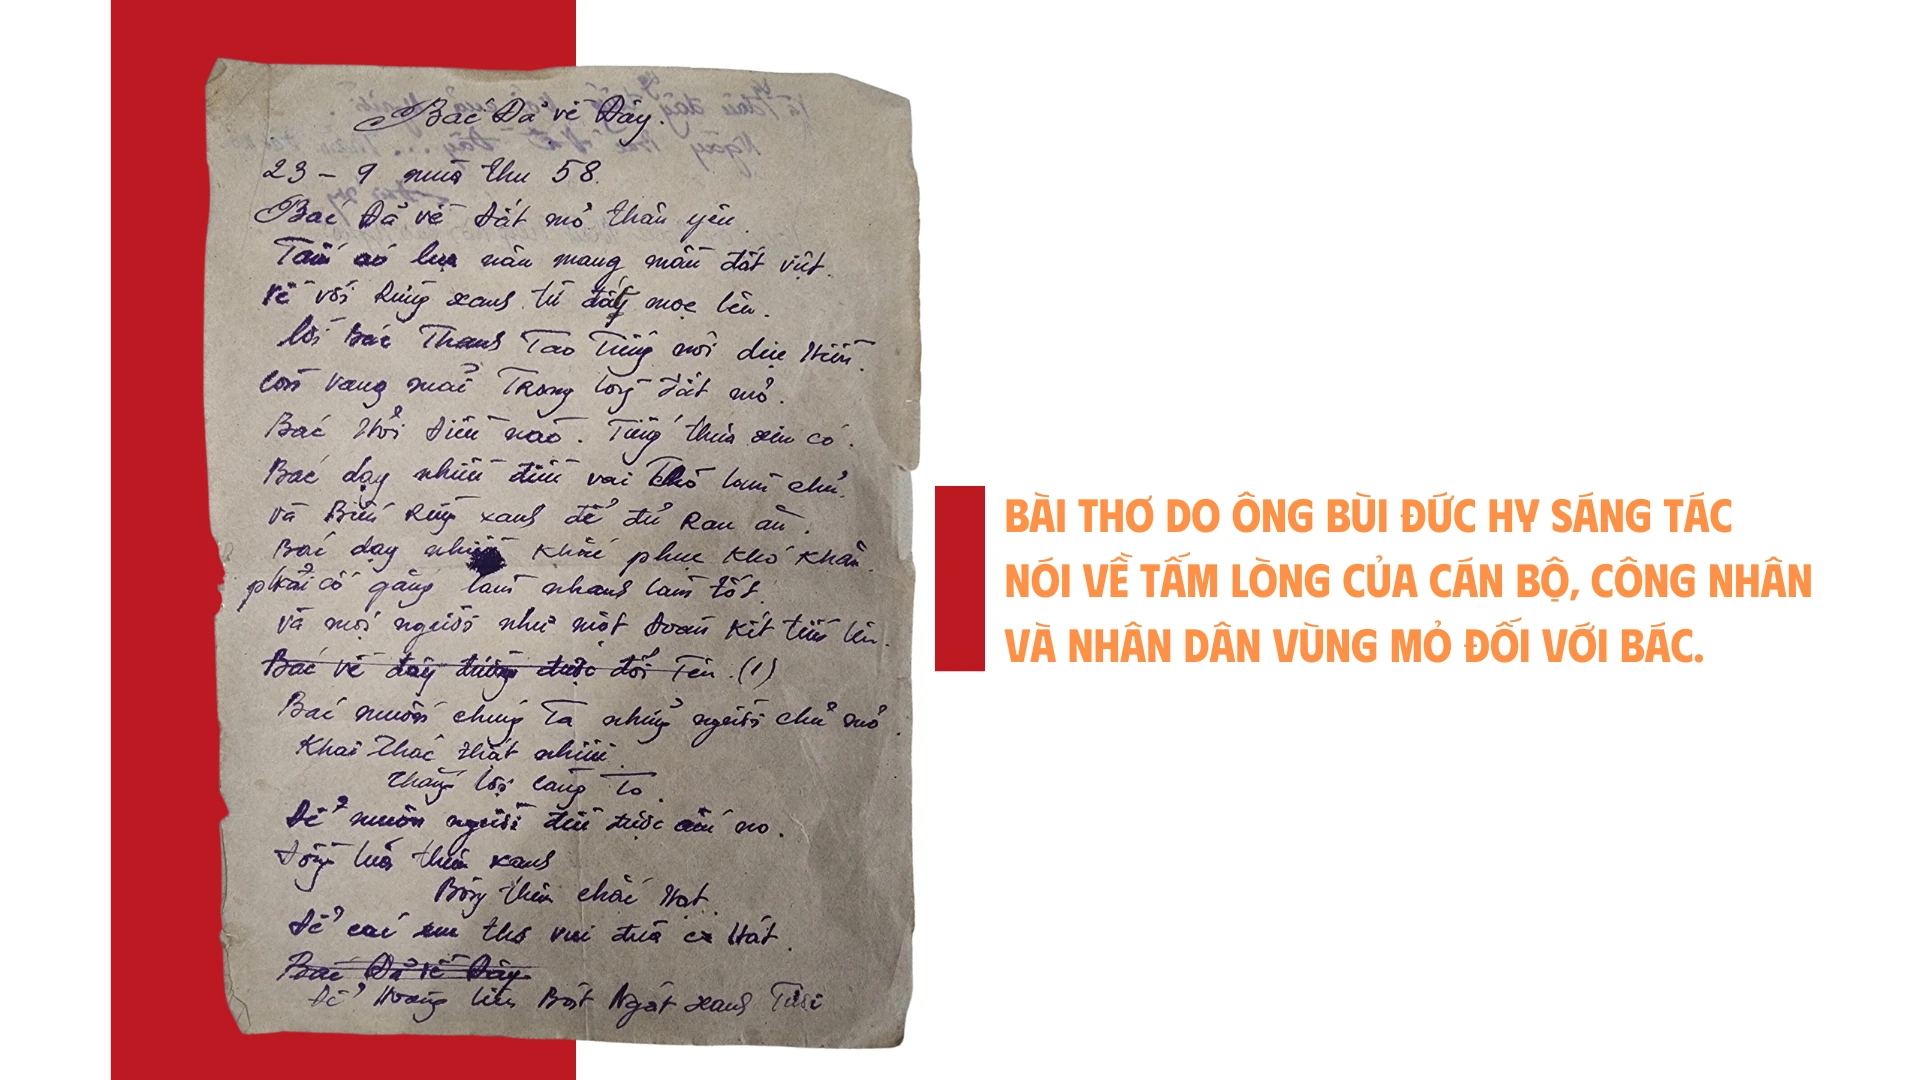 Bác Đã về Đây.
23 - 9 mùa thu 58.
Bác Đã về Đất mỏ thân yên.
Tấm áo lụa nâu mang mầu đất việt.
Về với Rừng xanh từ đấy mọc lên.
lời Bác Thanh Tao Tiếng nói dịu Hiền.
Còn vang mãi Trong lòng Đất mỏ.
Bác Hỏi Điều nào. Tiếng thưa xin có.
Bác dạy nhiều điều vai Thợ làm chủ.
và Biển Rừng xanh để đủ Rau ăn.
Bác dạy Khắc phục Khó Khăn.
phải cố gắng làm nhanh làm tốt.
và mọi người như một Đoàn Kết tiến lên.
Bác về đây đường được đổi Tên. (1)
Bác muốn chúng Ta những người chủ mỏ.
Khai Thác thật nhiều.
Thắng lợi càng To.
Để muôn người đều được ấm no.
Đồng lúa thêm xanh
Bông thêm chắc Hạt.
Để các em thơ vui đùa ca Hát.
Bác Đã về Đây
Để Hoàng liên Bát Ngát xanh Tươi
BÀI THƠ DO ÔNG BÙI ĐỨC HY SÁNG TÁC
NÓI VỀ TẤM LÒNG CỦA CÁN BỘ, CÔNG NHÂN
VÀ NHÂN DÂN VÙNG MỎ ĐỐI VỚI BÁC.